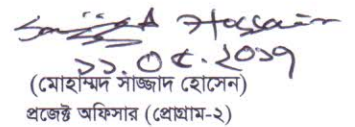 Hossain
১১.০৫.২০১৭
(মোহাম্মদ সাজ্জাদ হোসেন)
প্রজেক্ট অফিসার (প্রোগ্রাম-২)